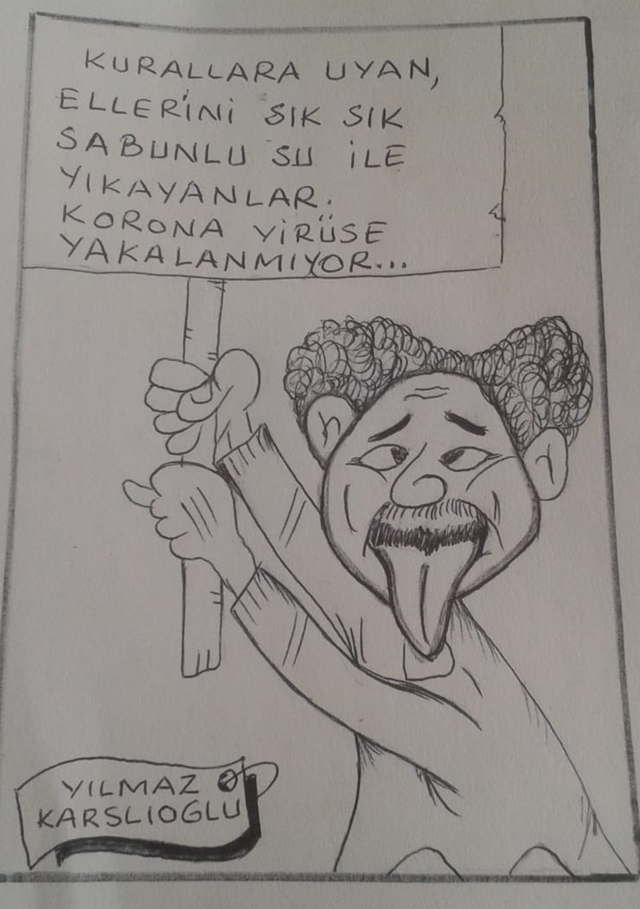 KURALLARA UYAN,
ELLERİNİ SIK SIK
SABUNLU SU İLE
YIKAYANLAR.
KORONA VİRÜSE
YAKALANMIYOR...
YILMAZ
KARSLIOGLU